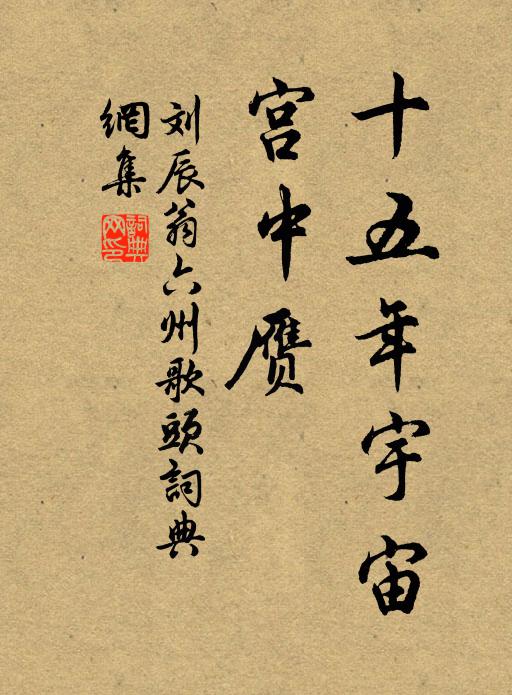 十五年宇宙
宫中赝
刘辰翁六州歌頭詞典
網集
詞典网印